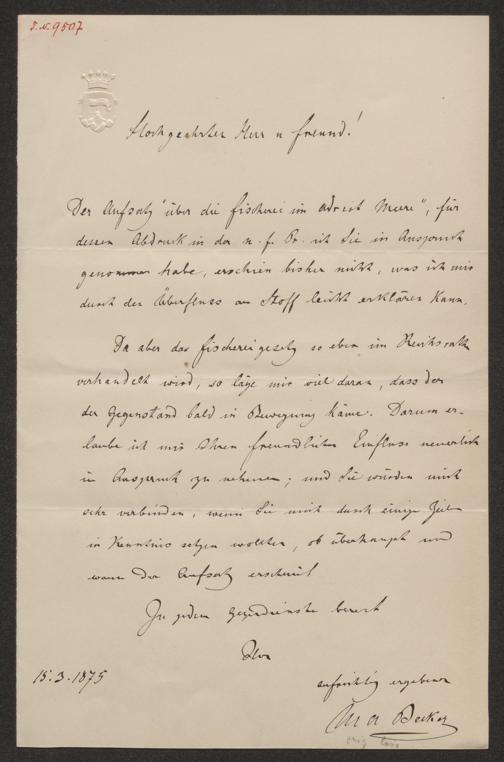 I.N. 9507
Hochgeehrter Herr u Freund!
Der Aufsatz "über die Fischerei im adriat Meere", für
dessen Abdruck in der n. f. Pr. ich Sie in Anspruch
genommen habe, erschien bisher nicht, was ich mir
durch den Überfluss an Stoff leicht erklären kann.
Da aber das Fischereigesetz so eben im Reichsrathe
verhandelt wird, so läge mir viel daran, dass
der Gegenstand bald in Bewegung käme. Darum er-
laube ich mir Ihren freundlichen Einfluss neuerlich
in Anspruch zu nehmen; und Sie würden mich
sehr verbinden, wenn Sie mich durch einige Zeilen
in Kenntnis setzen wollten, ob überhaupt und
wann der Aufsatz erscheint
Zu jedem Gegendienste bereit
Ihr
15.3.1875
aufrichtig ergebener
M A Becker